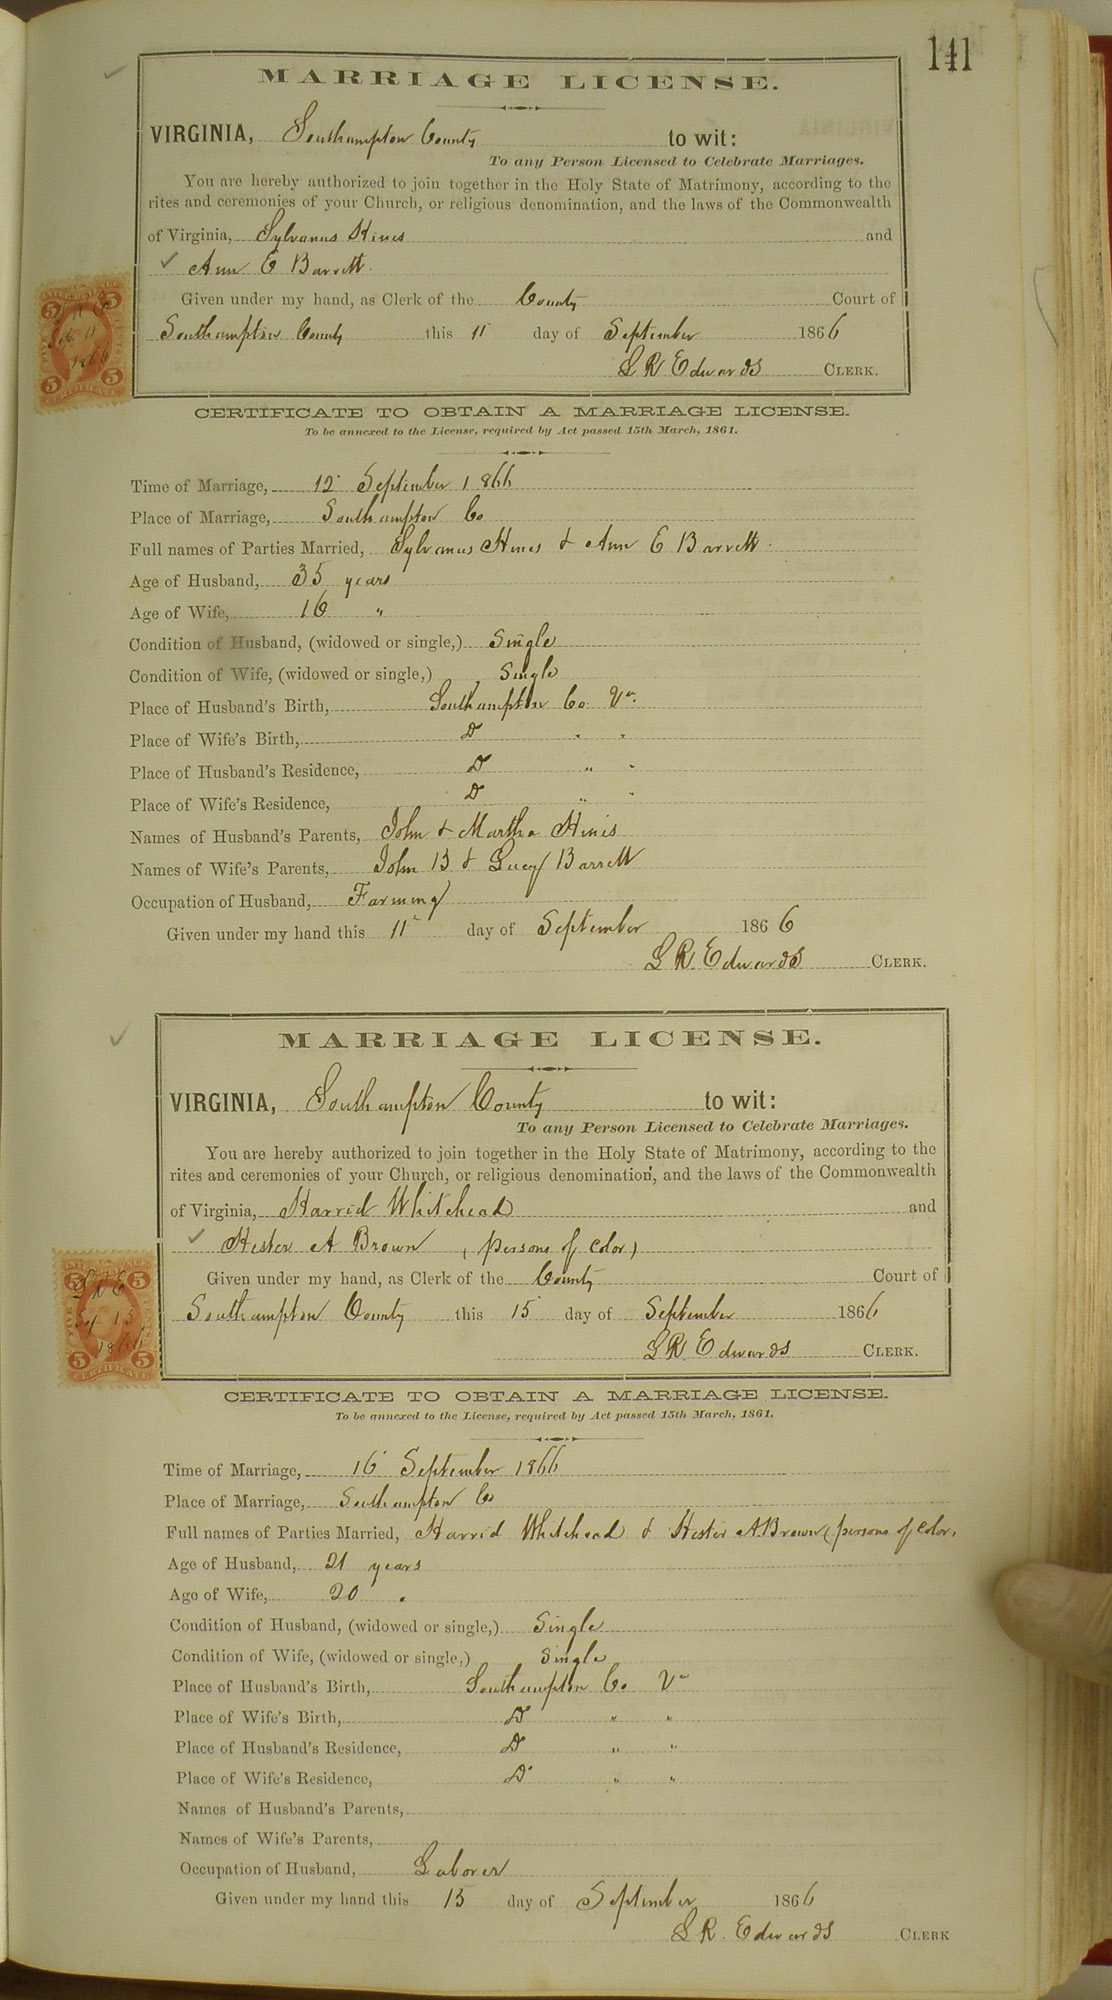 141
MARRIAGE LICENSE.
VIRGINIA, Southampton County to wit:
To any Person Licensed to Celebrate Marriages.
You are hereby authorized to join together in the Holy State of Matrimony, according to the
rites and ceremonies of your Church, or religious denomination, and the laws of the Commonwealth
of Virginia, Sylvanus Hines and
Ann E Barrett.
Given under my hand, as Clerk of the County Court of
Southampton County this 11 day of September 1866
L R Edwards CLERK.
5 5
Sep 11
1866
5 5
CERTIFICATE
CERTIFICATE TO OBTAIN A MARRIAGE LICENSE.
To be annexed to the License, required by Act passed 15th March, 1861.
Time of Marriage, 12 September 1866
Place of Marriage, Southampton Co
Full names of Parties Married, Sylvanus Hines & Ann E Barrett.
Age of Husband, 35 years
Age of Wife, 16 "
Condition of Husband, (widowed or single,) Single
Condition of Wife, (widowed or single,) Single
Place of Husband's Birth, Southampton Co. Va.
Place of Wife's Birth, Do " "
Place of Husband's Residence, Do " "
Place of Wife's Residence, Do " "
Names of Husband's Parents, John & Martha Hines
Names of Wife's Parents, John B & Lucy Barrett
Occupation of Husband, Farming
Given under my hand this 11 day of September 1866
L R. Edwards CLERK.
MARRIAGE LICENSE.
VIRGINIA, Southampton County to wit:
To any Person Licensed to Celebrate Marriages.
You are hereby authorized to join together in the Holy State of Matrimony, according to the
rites and ceremonies of your Church, or religious denomination, and the laws of the Commonwealth
of Virginia, Harrid Whitehead and
Hester A Brown (persons of color)
Given under my hand, as Clerk of the County Court of
Southampton County this 15 day of September 1866
L R. Edwards CLERK.
5 5
L R E
Sep 15
1866
5 5
CERTIFICATE
CERTIFICATE TO OBTAIN A MARRIAGE LICENSE.
To be annexed to the License, required by Act passed 15th March, 1861.
Time of Marriage, 16 September 1866
Place of Marriage, Southampton Co
Full names of Parties Married, Harrid Whitehead & Hester A. Brown (persons of color)
Age of Husband, 21 years
Age of Wife, 20 "
Condition of Husband, (widowed or single,) Single
Condition of Wife, (widowed or single,) Single
Place of Husband's Birth, Southampton Co. Va
Place of Wife's Birth, Do " "
Place of Husband's Residence, Do " "
Place of Wife's Residence, Do " "
Names of Husband's Parents,
Names of Wife's Parents,
Occupation of Husband, Laborer
Given under my hand this 15 day of September 1866
L R. Edwards CLERK